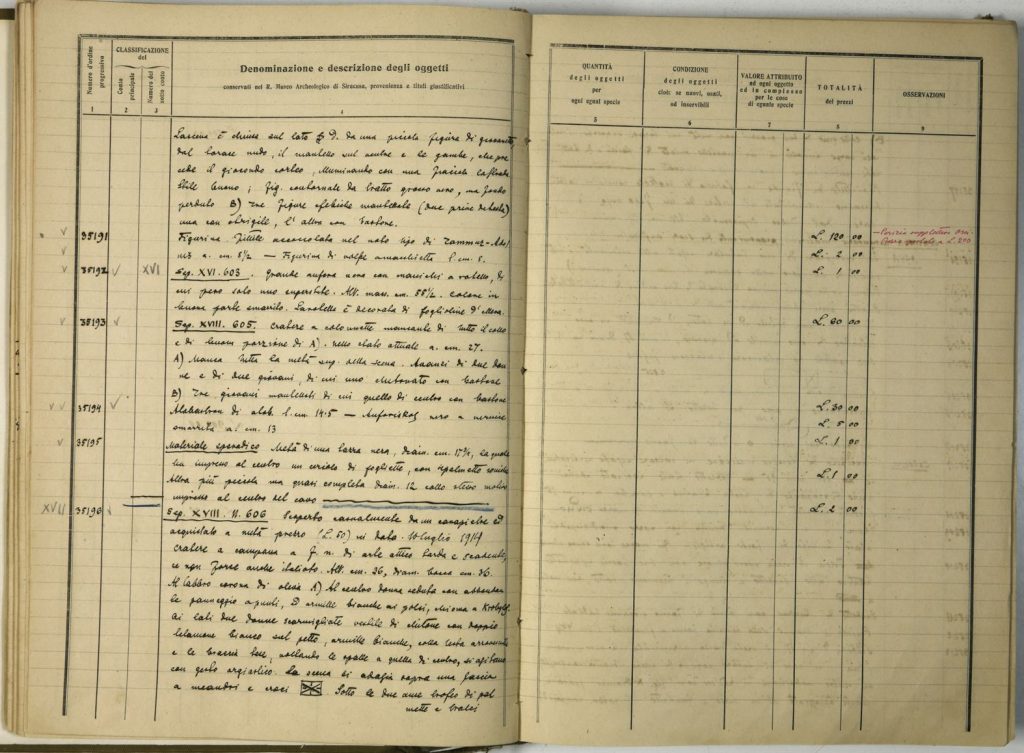 Numero d'ordine progressivo
CLASSIFICAZIONE
del
Conto principale
Numero del sotto conto
Denominazione e descrizione degli oggetti
conservati nel R. Museo Archeologico di Siracusa, provenienza e titoli giustificativi
1 2 3 4
QUANTITÀ
degli oggetti
per
ogni egual specie
CONDIZIONE
degli oggetti
cioè: se nuovi, usati,
od inservibili
VALORE ATTRIBUITO
ad ogni oggetto
ed in complesso
per le cose
di eguale specie
TOTALITÀ
dei prezzi
OSSERVAZIONI
5 6 7 8 9
La scena è chiusa sul lato D. da una piccola figura di giovanetto
dal torace nudo, il mantello sul ventre e le gambe, che pre
cede il giocondo corteo, illuminando con una fiaccola la
buono; fig. contornate da tratto grosso nero, ma fondo
perduto B) Tre figure efebiche mantellate (due prive di testa)
una con strigile, l'altra con bastone.
35191 Figurina fittile accoccolata nel noto tipo di
a. cm. 8½ — Figurina di l. cm. 8.
35192 XVI Sep. XVI. 603. Grande anfora nera con manichi a rotelle, di
cui però solo uno superstite. Alt. mass. cm. 55½. Colore in
buona parte smarrito. La rotella è decorata di foglioline d'edera.
35193 Sep. XVIII. 605. Cratere a colonnette mancante di tutto il collo
e di buona porzione di A). nello stato attuale a. cm. 27.
A) Manca tutta la metà sup. della scena. Avanzi di due don
ne e di due giovani, di cui uno clutonato con bastone
B) Tre giovani mantellati di cui quello di centro con bastone
35194 Alabastron di alab. l. cm. 19.5 — Anforiskos nero a vernice
smarrita a. cm. 13
35195 Materiale sporadico Metà di una tazza nera, diam. cm. 17½, la quale
ha impresso al centro un circolo di fogliette, con
Altra più piccola ma quasi completa diam. 12 collo stesso motivo
impresso al centro del cavo
XVII 35196 Sep. XVIII. N. 606 Scoperto casualmente da un ed
acquistato a metà prezzo (L. 50) in data 10 luglio 1914
Cratere a campana a f. n. di arte attica tarda e scadente,
se non forse anche italiota. Alt. cm. 36, diam. bocca cm. 36.
Al labbro corona di olivo A) Al centro donna seduta con abbondan
te panneggio a punti, ed armille bianche ai polsi, chioma a
Ai lati due donne scarmigliate vestite di chitone con doppio
balamone bianco sul petto, armille bianche, colla testa arrovesciata
e le braccia tese, voltando le spalle a quella di centro, si agitano
con gesto orgiastico. La scena si adagia sopra una fascia
a meandri e croci Sotto le due anse trofeo di pal
mette e tralci
L. 120 00
L. 2 00
L. 1 00
L. 60 00
L. 30 00
L. 5 00
L. 1 00
L. 1 00
L. 2 00
a L. 200